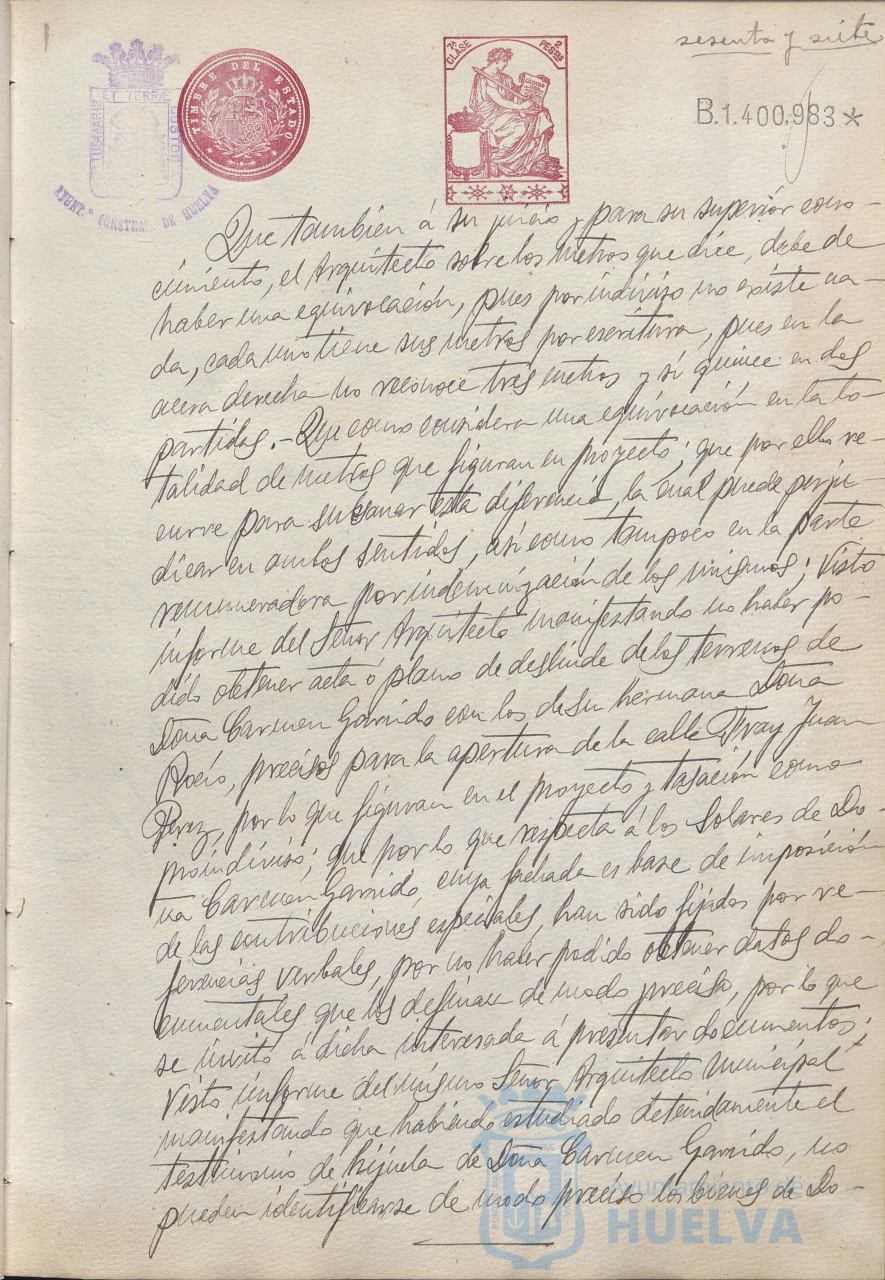 sesenta y siete
PORTUS MARIS ET TERRAE CUSTODIA
AYUNT.º CONSTNAL. DE HUELVA
TIMBRE DEL ESTADO
7ª CLASE
2 PESTAS
B.1.400,983*
Que también á su juicio y para su superiór cono-
cimiento, el Arquitecto sobre los metros que dice, debe de
haber una equivocación, pues por indiviso no existe na-
da, cada uno tiene sus metros por escritura, pues en la
acera derecha no reconoce tres metros y sí quince en dos
partidas.- Que como considera una equivocación en la to-
talidad de metros que figuran en proyecto; que por ello re-
curre para subsanar esta diferencia, la cual puede perju-
dicar en ambos sentidos, así como tampoco en la parte
remuneradora por indemnización de los mismos; Visto
informe del Señor Arquitecto manifestando no haber po-
dido obtener acta ó plano de deslinde de los terrenos de
Doña Carmen Garrido con los de su hermana Doña
Rocío, precisos para la apertura de la calle Fray Juan
Perez, por lo que figuran en el proyecto y tasación como
proindiviso; que por lo que respecta á los solares de Do-
ña Carmen Garrido, cuya fachada es base de imposición
de las contribuciones especiales, han sido fijados por re-
ferencias verbales, por no haber podido obtener datos do-
cumentales que los definan de modo preciso, por lo que
se invitó á dicha interesada á presentar documentos;
Visto informe del mismo Señor Arquitecto Municipal
manifestando que habiendo estudiado detenidamente el
testimonio de hijuela de Doña Carmen Garrido, no
pueden identificarse de modo preciso los bienes de Do-
Ayuntamiento de
HUELVA